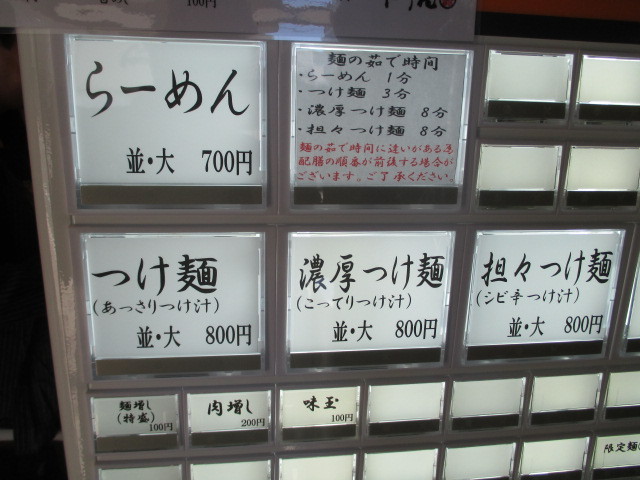 100円
らーめん
並・大 700円
麺の茹で時間
・らーめん 1分
・つけ麺 3分
・濃厚つけ麺 8分
・担々つけ麺 8分
麺の茹で時間に違いがある為
配膳の順番が前後する場合が
ございます。ご了承ください。
つけ麺
(あっさりつけ汁)
並・大 800円
濃厚つけ麺
(こってりつけ汁)
並・大 800円
担々つけ麺
(シビ辛つけ汁)
並・大 800円
麺増し
(特盛)
100円
肉増し
200円
味玉
100円
限定麺